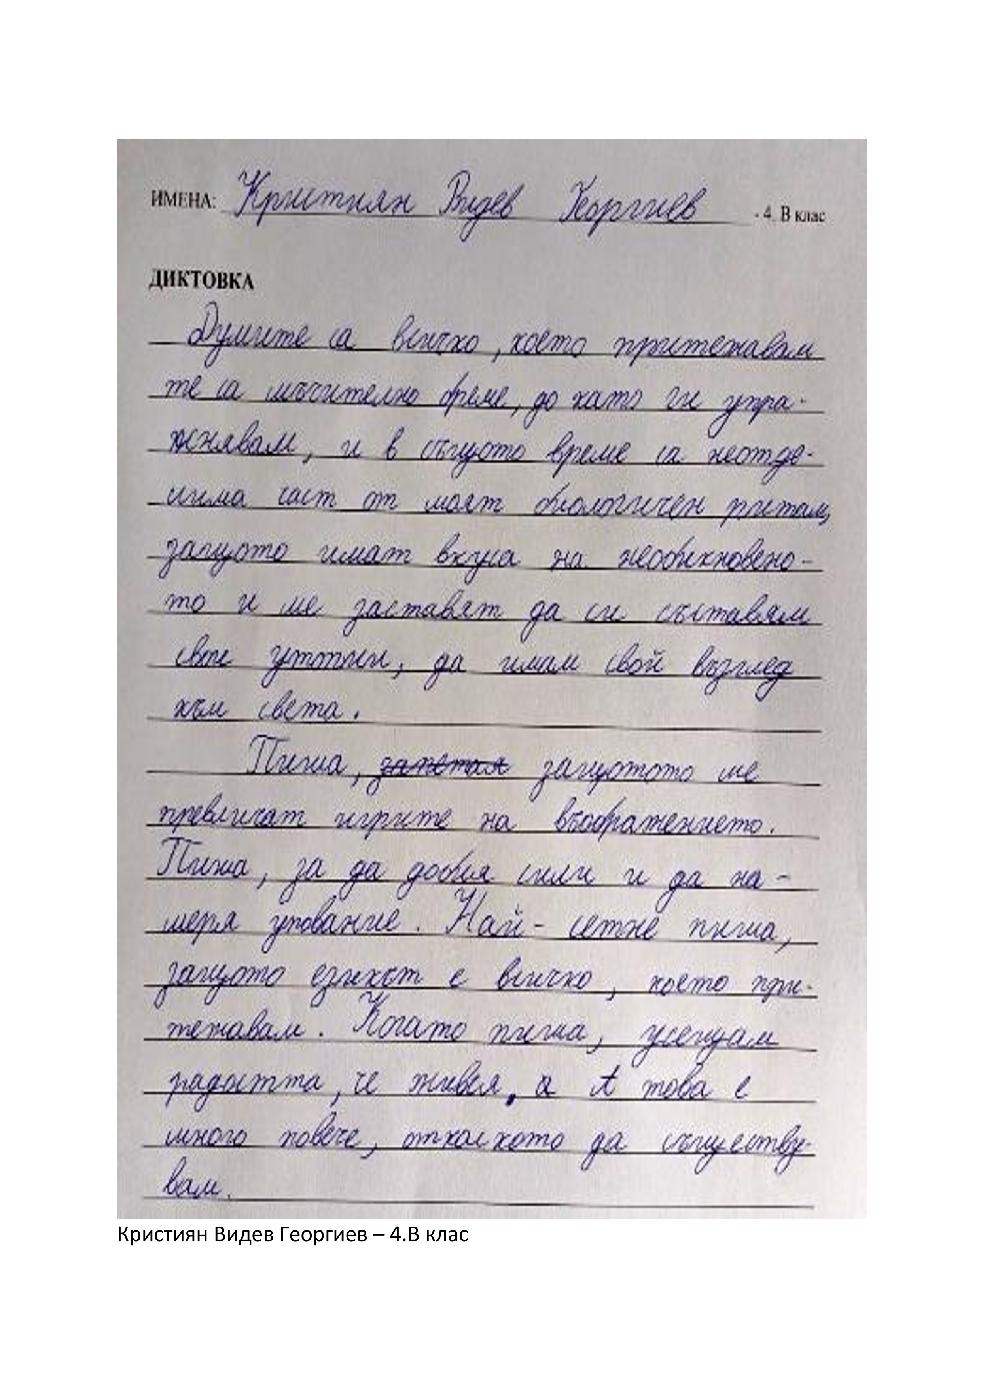 ИМЕНА: Кристиян Видев Георгиев - 4. В клас
ДИКТОВКА
Думите са всичко, което притежавам
те са мъчително бреме, до като ги упра-
жнявам, и в същото време са неотде-
лима част от моят биологичен ритъм,
защото имат вкуса на необикновено-
то и ме заставят да си съставям
свои утопии, да имам свой възглед
към света.
Пиша, запетая защотото ме
превличат игрите на въображението.
Пиша, за да добия сили и да на-
меря упование. Най- сетне пиша,
защото езикът е всичко, което при-
тежавам. Когато пиша, усещам
радостта, че живея, а А това е
много повече, отколкото да съществу-
вам.
Кристиян Видев Георгиев – 4.В клас